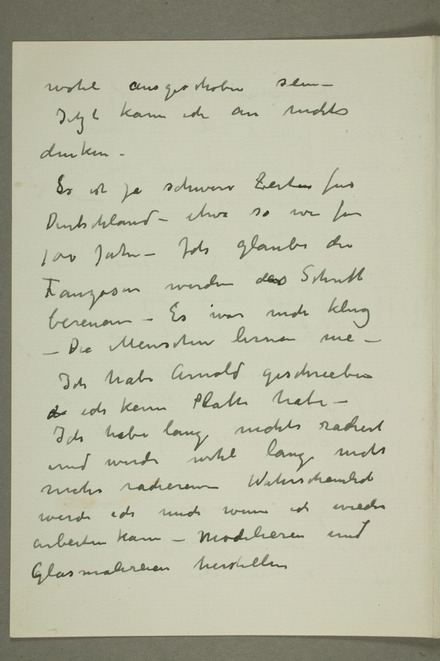 wohl ausgeschoben sein –
Jetzt kann ich an nichts
denken –
Es ist ja schwere Zeiten für
Deutschland – etwa so wie für
100 Jahr – Ich glaube die
Franzosen werden den Schritt
bereuen – Es war nicht klug
– Die Menschen lernen nie –
Ich habe Arnold geschrieben
ich keine Platte habe –
Ich habe lang nichts radiert
und werde wohl lange nicht
mehr radieren Wahrscheinlich
werde ich mich wenn ich wieder
arbeiten kann – Modelieren und
Glasmalereien herstellen